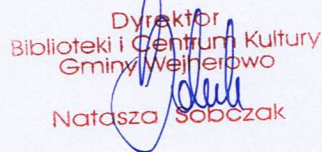 Dyrektor
Biblioteki i Centrum Kultury
Gminy Wejherowo
Natasza Sobczak